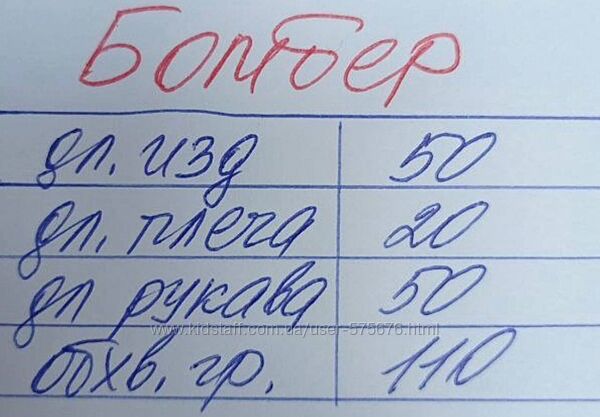 Бомбер
дл. изд 50
дл. плеча 20
дл рукава 50
www.kidstaff.com.ua/user-575676.html
обхв. гр. 110